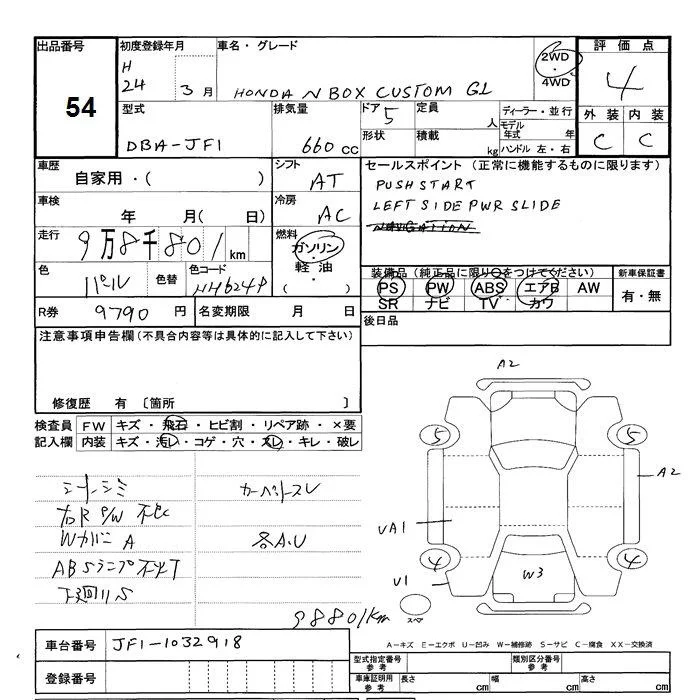 出品番号
54
初度登録年月
H
24
3 月
車名・グレード
HONDA N BOX CUSTOM GL
2WD
・
4WD
評価点
4
外装 内装
C C
型式
DBA-JF1
排気量
660 cc
ドア
5
定員
人
形状
積載
kg
ディーラー・並行
モデル
年式 年
ハンドル 左・右
車歴
自家用・( )
シフト
AT
車検
年 月( 日)
冷房
AC
走行
9万8千801 km
燃料
ガソリン
・
軽油
・
( )
色
パール
色替
色コード
NH624P
R券
9790 円
名変期限 月 日
セールスポイント(正常に機能するものに限ります)
PUSH START
LEFT SIDE PWR SLIDE
NAVIGATION
装備品(純正品に限り○をつけてください)
PS PW ABS エアB AW
SR ナビ TV カワ
新車保証書
有・無
後日品
注意事項申告欄(不具合内容等は具体的に記入して下さい)
修復歴 有〔箇所 〕
検査員
記入欄
FW キズ・飛石・ヒビ割・リペア跡・×要
内装 キズ・汚レ・コゲ・穴・スレ・キレ・破レ
シートシミ
カーペットスレ
右R P/W 不
Wカバー A
各A.U
ABSランプ不
下廻りS
98801km
A2
5
5
A2
VA1
4
4
V1
W3
スペア
A-キズ E-エクボ U-凹み W-補修跡 S-サビ C-腐食 XX-交換済
車台番号
JF1-1032918
登録番号
型式指定番号
参考
類別区分番号
参考
車庫証明用
参考
長さ cm 幅 cm 高さ cm